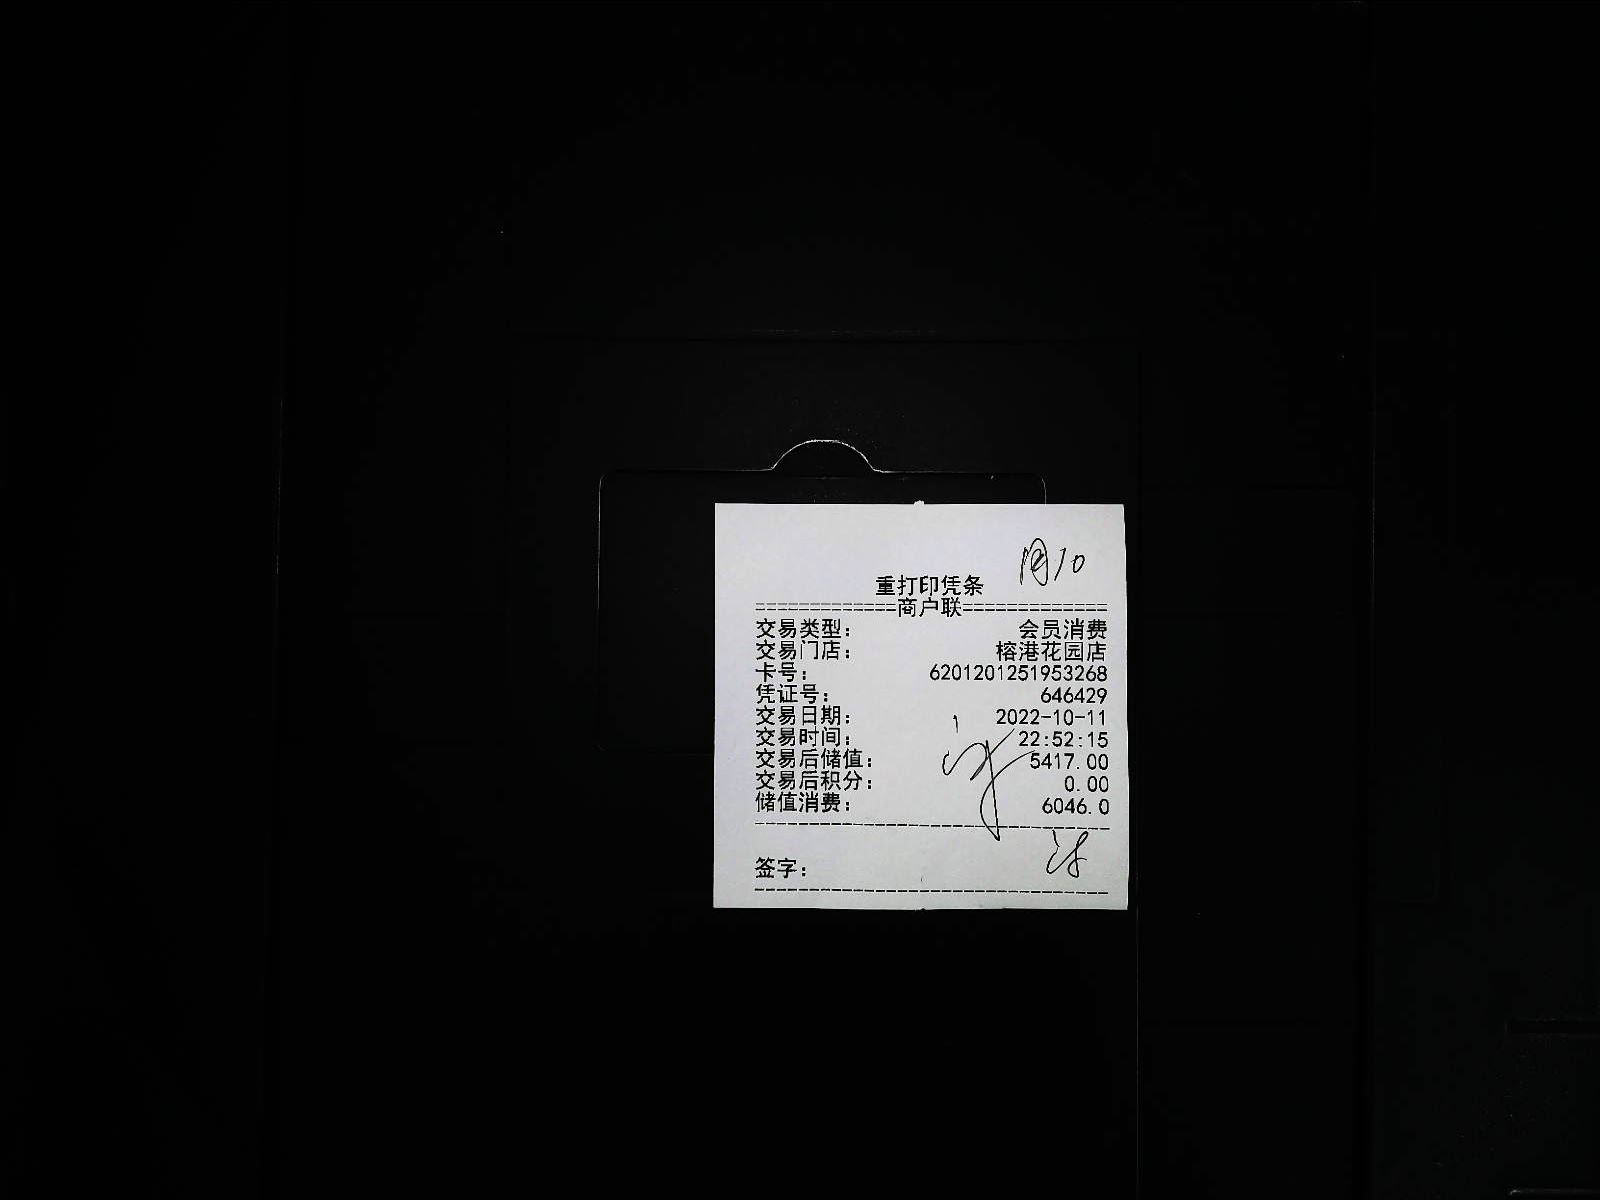 重打印凭条
=============商户联=============
交易类型： 会员消费
交易门店： 榕港花园店
卡号： 6201201251953268
凭证号： 646429
交易日期： 2022-10-11
交易时间： 22:52:15
交易后储值： 5417.00
交易后积分： 0.00
储值消费： 6046.0
签字：